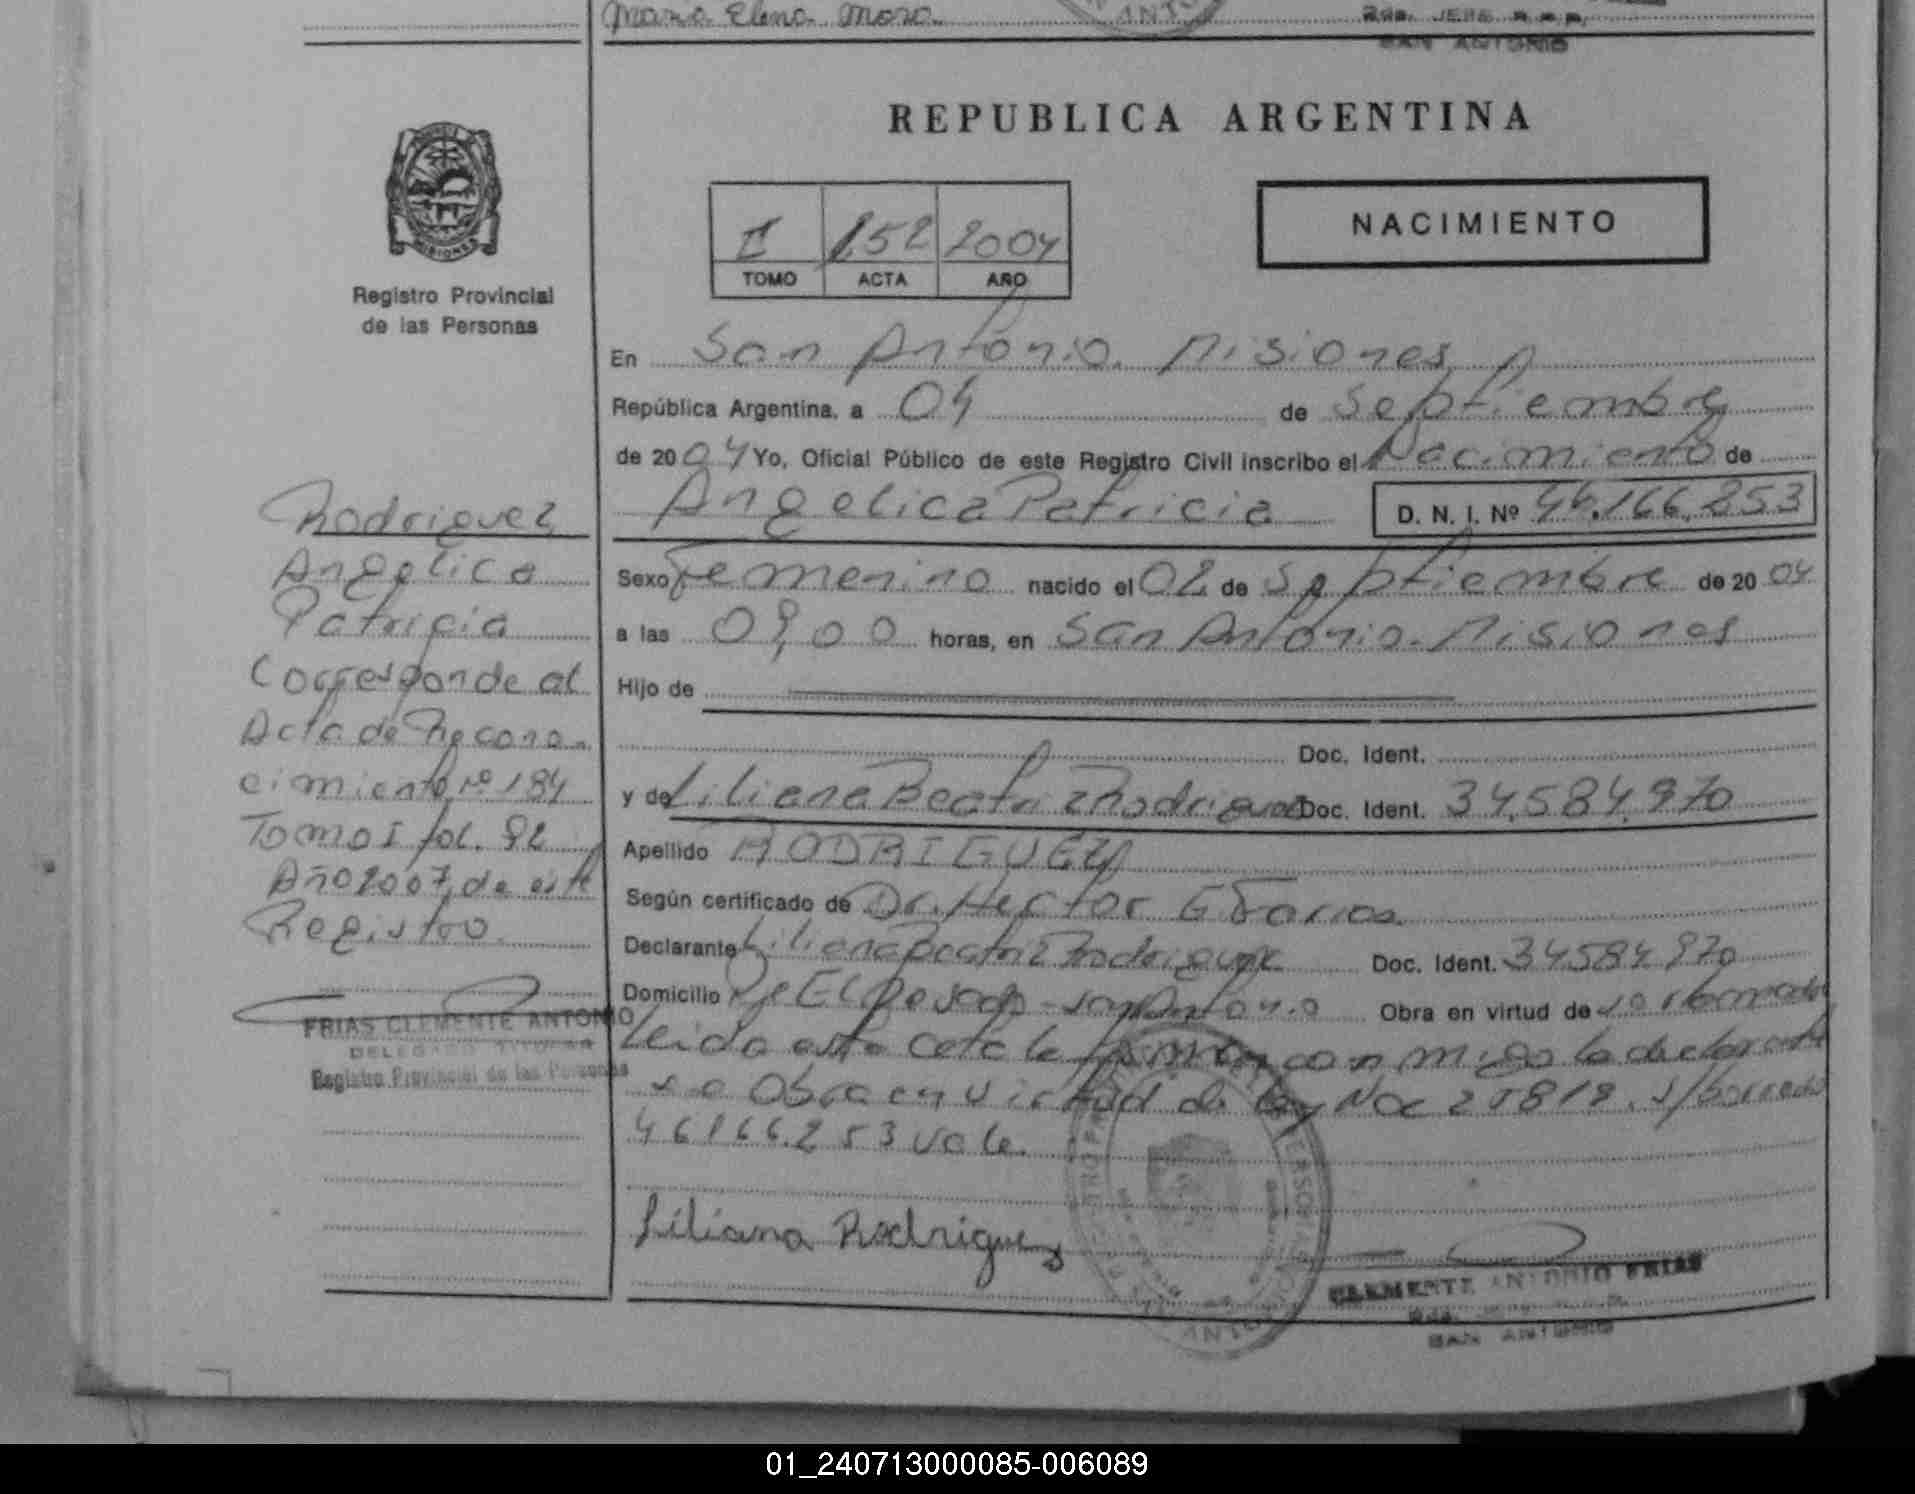 Maria Elena Mora
SAN ANTONIO
REPUBLICA ARGENTINA
NACIMIENTO
I 152 2004
TOMO ACTA AÑO
MISIONES
Registro Provincial
de las Personas
En San Antonio. Misiones
República Argentina, a 04 de Septiembre
de 2004 Yo, Oficial Público de este Registro Civil inscribo el Nacimiento de
Angelica Patricia D. N. I. Nº 46.166.253
Sexo Femenino nacido el 02 de Septiembre de 2004
a las 09,00 horas, en San Antonio. Misiones
Hijo de
Doc. Ident.
y de Liliana Beatriz Rodriguez Doc. Ident. 34.584.970
Apellido RODRIGUEZ
Según certificado de Dr. Hector G Farias
Declarante Liliana Beatriz Rodriguez Doc. Ident. 34584970
Domicilio Pje El Pesado - San Antonio Obra en virtud de
Leida esta acta la firma conmigo la declarante
Obra en virtud de Ley Nac 25819. s/borrado
46166.253 vale.
Liliana Rodriguez
CLEMENTE ANTONIO FRIAS
SAN ANTONIO
Rodriguez
Angelica
Patricia
Corresponde al
Acta de Recono-
cimiento Nº 184
Tomo I fol. 92
Año 2007 de este
Registro.
FRIAS CLEMENTE ANTONIO
DELEGADO TITULAR
Registro Provincial de las Personas
01_240713000085-006089